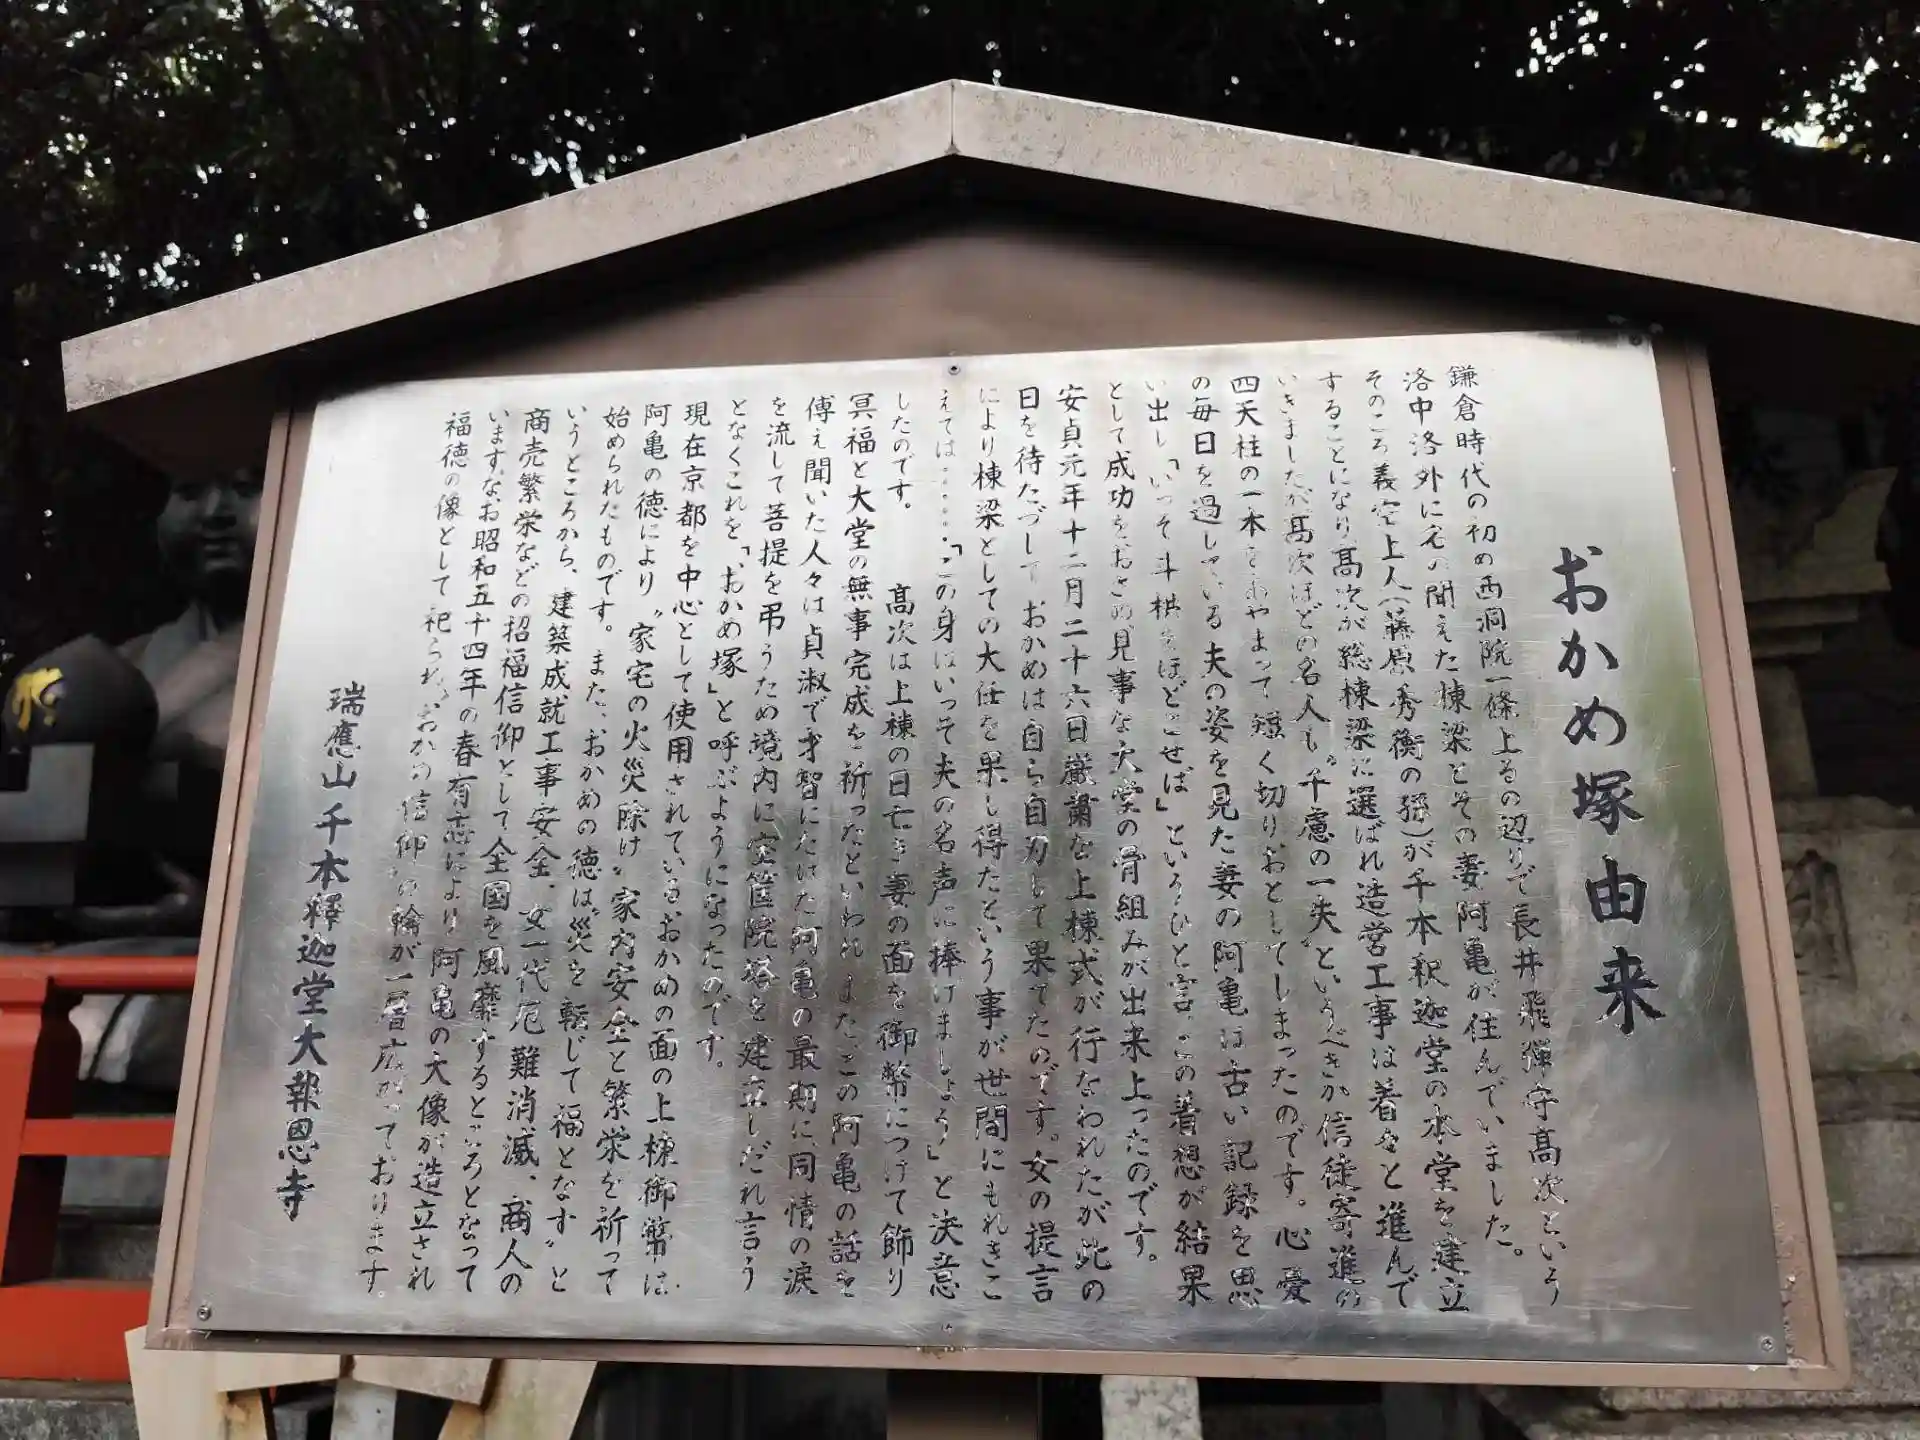 おかめ塚由来
鎌倉時代の初め西洞院一條上るの辺りで長井飛弾守高次という
洛中洛外に名の聞えた棟梁とその妻阿亀が住んでいました。
そのころ義空上人(藤原秀衡の孫)が千本釈迦堂の本堂を建立
することになり高次が総棟梁に選ばれ造営工事は着々と進んで
いきましたが高次ほどの名人も〝千慮の一失〟というべきか信徒寄進の
四天柱の一本をあやまって短く切りおとしてしまったのです。心憂
の毎日を過している夫の姿を見た妻の阿亀は古い記録を思
い出し「いっそ斗栱をほどこせば」というひと言、この着想が結果
として成功をおさめ見事な大堂の骨組みが出来上ったのです。
安貞元年十二月二十六日厳粛な上棟式が行なわれたが此の
日を待たづしておかめは自ら自刃して果てたのです。女の提言
により棟梁としての大任を果し得たという事が世間にもれきこ
えては‥‥‥「この身はいっそ夫の名声に捧げましょう」と決意
したのです。 高次は上棟の日亡き妻の面を御幣につけて飾り
冥福と大堂の無事完成を祈ったといわれ、またこの阿亀の話を
傳え聞いた人々は貞淑で才智にたけた阿亀の最期に同情の涙
を流して菩提を弔うため境内に宝筐院塔を建立しだれ言う
となくこれを「おかめ塚」と呼ぶようになったのです。
現在京都を中心として使用されているおかめの面の上棟御幣は
阿亀の徳により〝家宅の火災除け〟家内安全と繁栄を祈って
始められたものです。また、おかめの徳は〝災を転じて福となす〟と
いうところから、建築成就工事安全、女一代厄難消滅、商人の
商売繁栄などの招福信仰として全国を風靡するところとなって
います。なお昭和五十四年の春有志により阿亀の大像が造立され
福徳の像として祀られ、〝おかめ信仰〟の輪が一層広がっております。
瑞應山千本釋迦堂大報恩寺